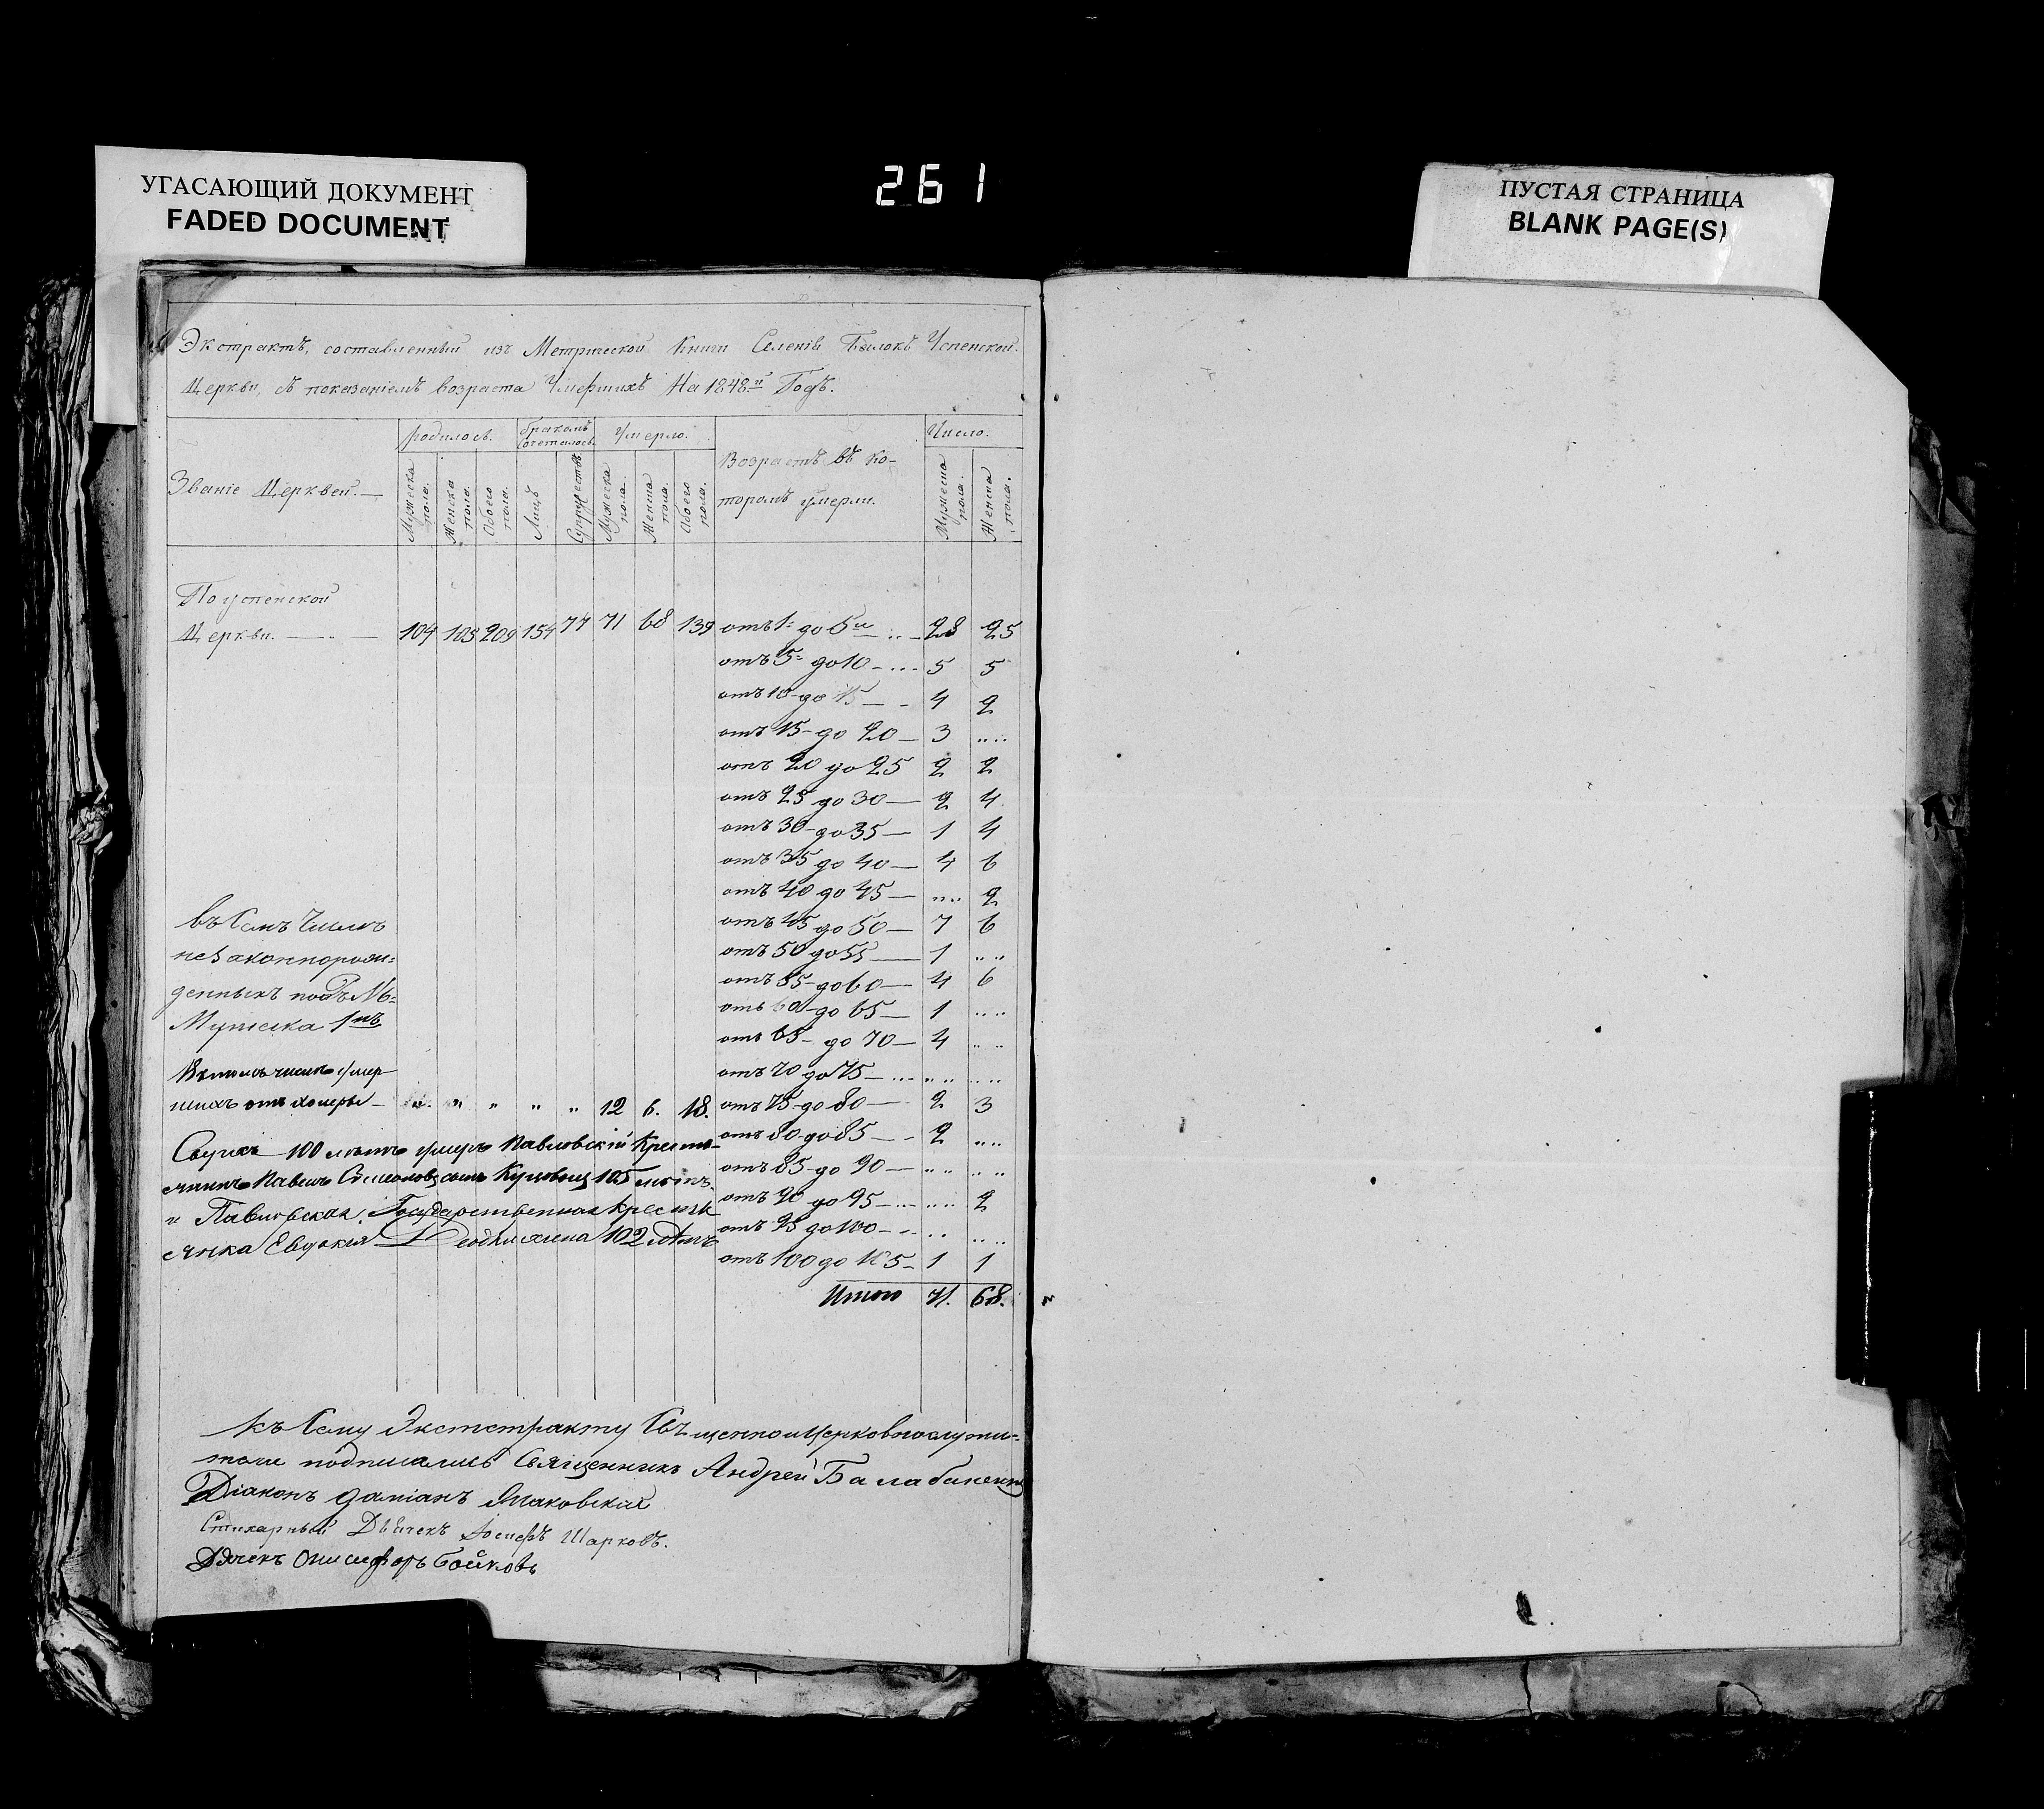 УГАСАЮЩИЙ ДОКУМЕНТ
FADED DOCUMENT
261
ПУСТАЯ СТРАНИЦА
BLANK PAGE(S)
Экстрактъ, составленный изъ Метрической Книги Селенія Успенской
Церкви, съ показаніемъ возраста Умершихъ На 1848й Годъ.
Званіе Церквей.
родилось. бракомъ сочеталось. Умерло. Возрастъ въ ко- Число.
торомъ умерли.
Мужеска пола. Женска пола. Обоего пола. Лицъ Супружествъ Мужеска пола. Женска пола. Обоего пола. Мужеска пола. Женска пола.
По успенской
Церкви. 104 105 209 154 77 71 68 139 отъ 1 до 5и 28 25
отъ 5 до 10 5 5
отъ 10 до 15 4 2
отъ 15 до 20 3 „ „
отъ 20 до 25 2 2
отъ 25 до 30 2 4
отъ 30 до 35 1 4
отъ 35 до 40 4 6
отъ 40 до 45 „ „ 2
отъ 45 до 50 7 6
отъ 50 до 55 1 „ „
отъ 55 до 60 4 6
отъ 60 до 65 1 „ „
отъ 65 до 70 4 „ „
отъ 70 до 75 „ „ „ „
отъ 75 до 80 2 3
отъ 80 до 85 2 „ „
отъ 85 до 90 „ „ „ „
отъ 90 до 95 „ „ 2
отъ 95 до 100 „ „ „ „
отъ 100 до 105 1 1
Итого 71. 68.
въ Семъ Числѣ
незаконнорож=
денныхъ
Мужеска 1нъ
Въ томъ числѣ умер
шихъ отъ холеры „ „ „ „ „ 12 6. 18.
Свыше 100 лѣтъ умеръ Павловскій Крестъ-
янинъ Павелъ сынъ 105 лѣтъ.
и Павловская Государственная Крестьь
янка Евдокія 102 лѣтъ
Къ Сему Экстстракту Священноицерковнослужи=
тели подписались Священникъ Андрей
Діаконъ Даміанъ
Стихарный Дьячекъ Іосифъ Шарковъ.
Дячекъ Онисифоръ Бойковъ